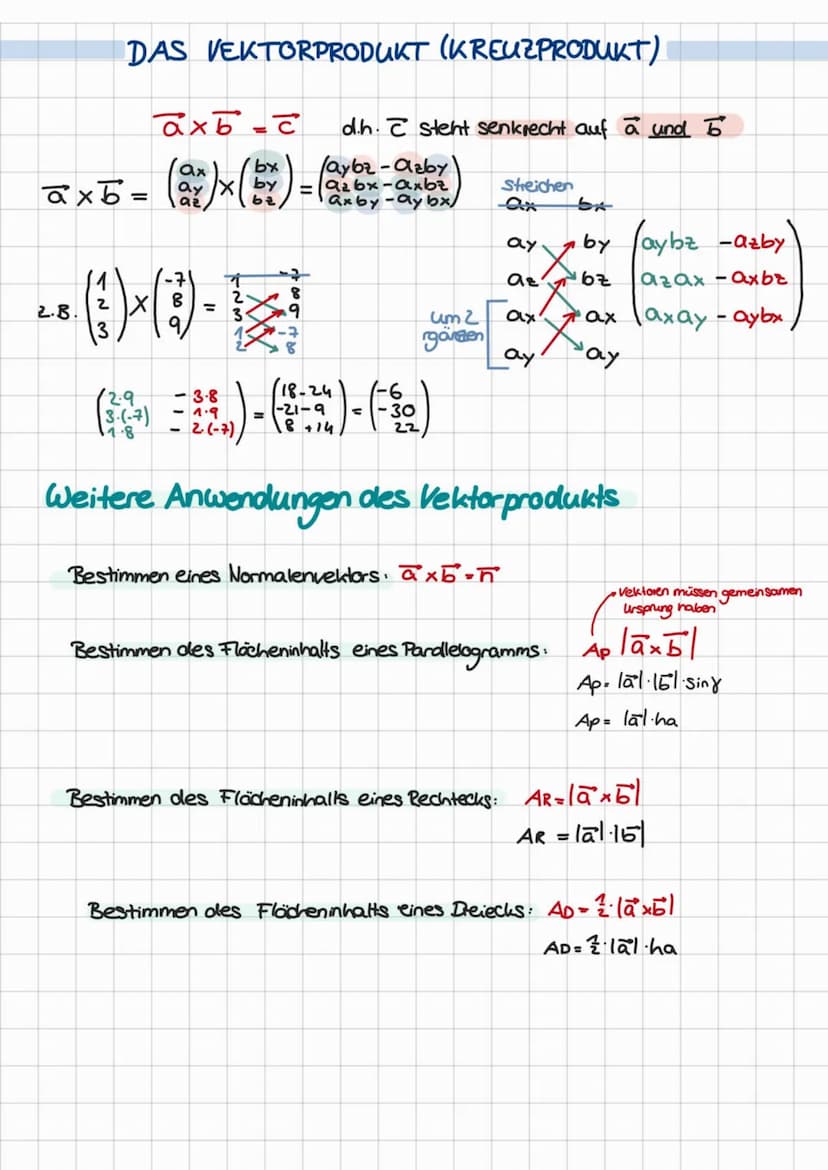 DAS VEKTORPRODUKT (KREUZPRODUKT)
a⃗ x b⃗ = c⃗ d.h. c⃗ steht senkrecht auf a⃗ und b⃗
a⃗ x b⃗ = (ax ay az) x (bx by bz) = (aybz - azby azbx - axbz axby - aybx)
Streichen
ax bx
ay by
az bz
ax ax
ay ay
um 2
(aybz - azby
azax - axbz
axay - aybx)
z.B. (1 2 3) x (-7 8 9) =
1 -7
2 8
3 9
1 -7
2 8
(2·9 - 3·8
3·(-7) - 1·9
1·8 - 2·(-7)) = (18-24 -21-9 8+14) = (-6 -30 22)
Weitere Anwendungen des Vektorprodukts
Bestimmen eines Normalenvektors: a⃗ x b⃗ = n⃗
Vektoren müssen gemeinsamen
Ursprung haben
Bestimmen des Flächeninhalts eines Parallelogramms: Ap |a⃗ x b⃗|
Ap = |a⃗|·|b⃗|·sinγ
Ap = |a⃗|·ha
Bestimmen des Flächeninhalts eines Rechtecks: AR = |a⃗ x b⃗|
AR = |a⃗|·|b⃗|
Bestimmen des Flächeninhalts eines Dreiecks: AD = ½·|a⃗ x b⃗|
AD = ½·|a⃗|·ha